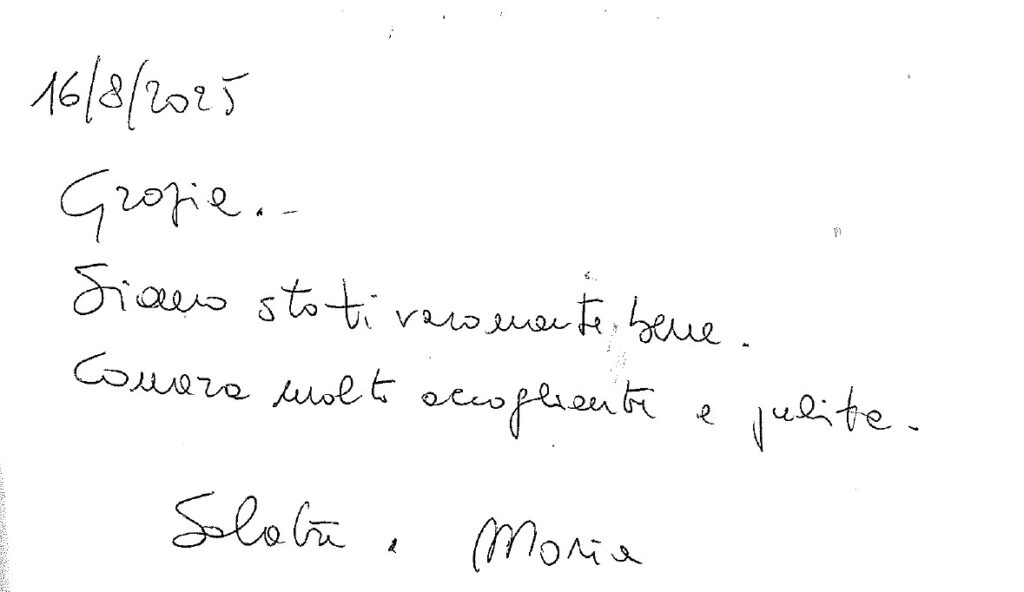 16/8/2025
Grazie.-
Siamo stati veramente bene.
Camera molto accogliente e pulita.
Maria